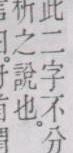 此二字不分
析之說也。